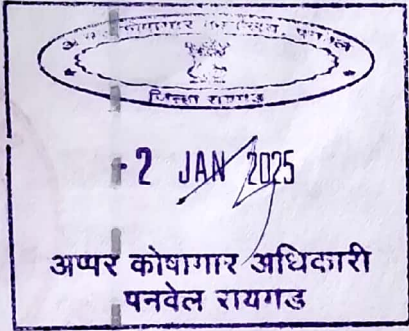 जिल्हा रायगड
-2 JAN 2025
अप्पर कोषागार अधिकारी
पनवेल रायगड